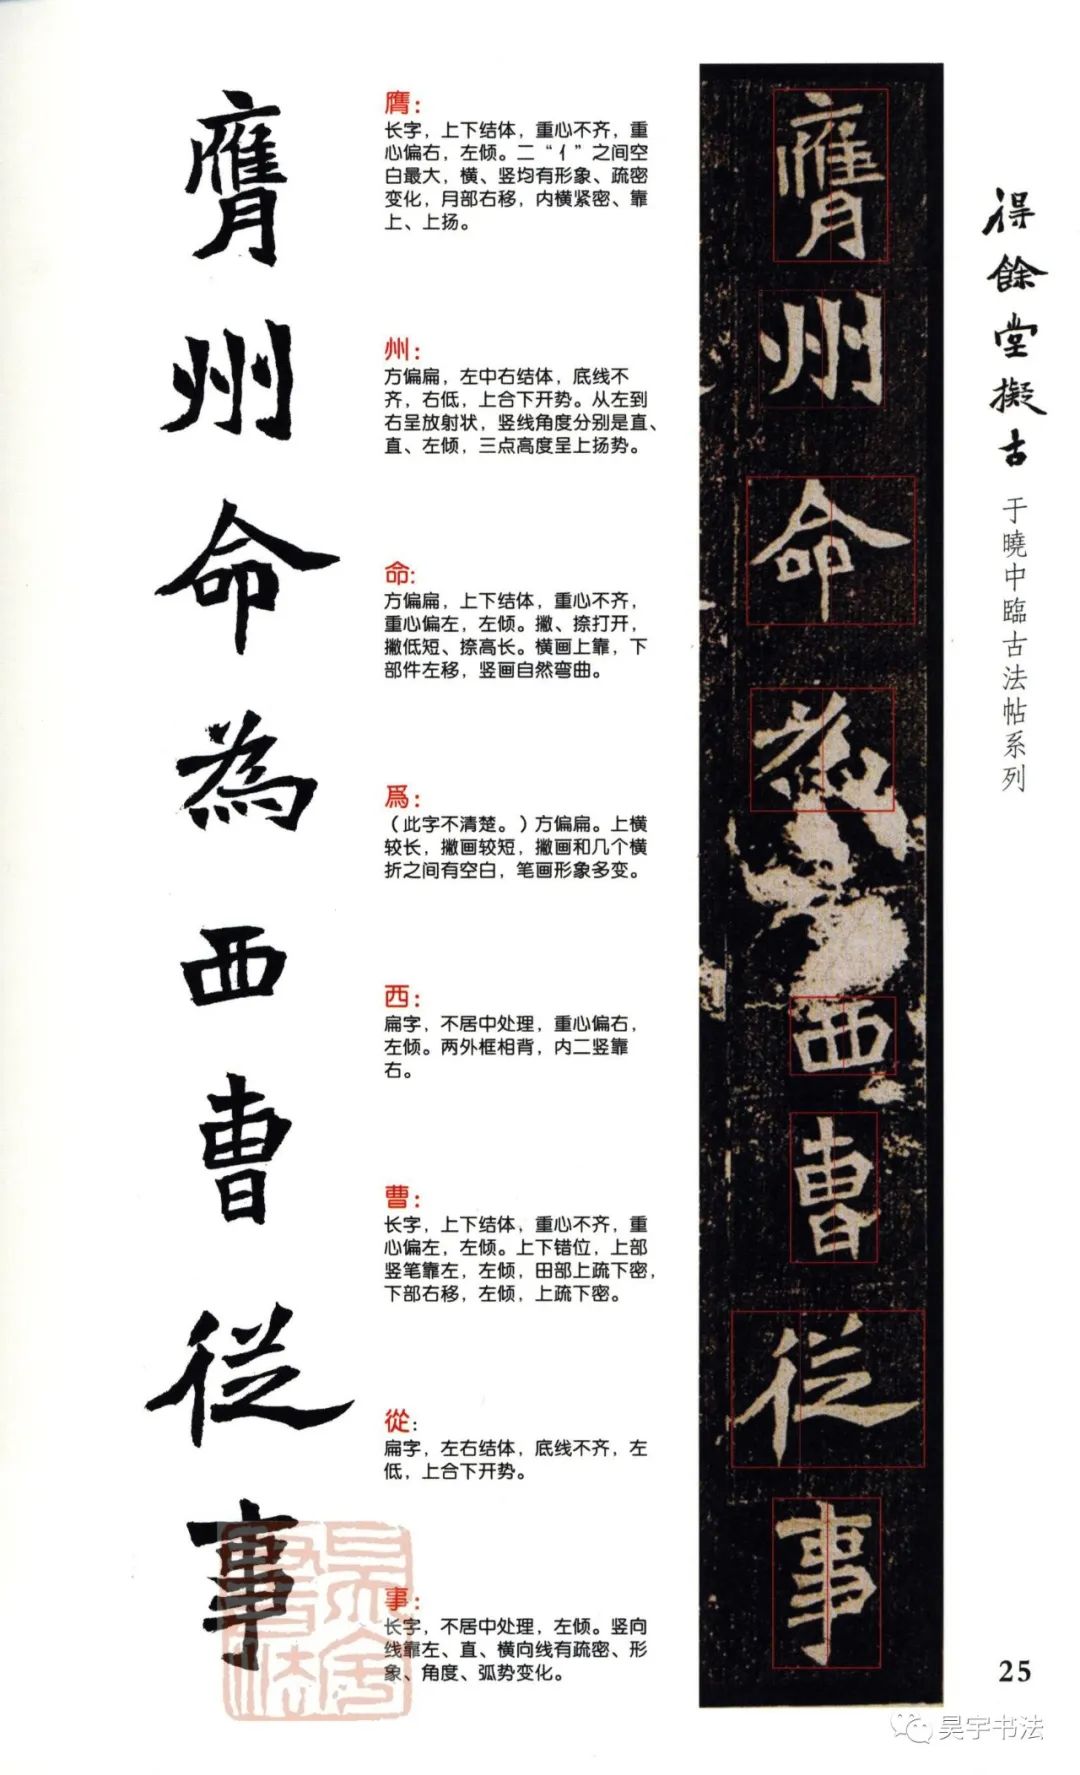 膺
州
命
為
西
曹
從
事
膺：
长字，上下结体，重心不齐，重
心偏右，左倾。二“亻”之间空
白最大，横、竖均有形象、疏密
变化，月部右移，内横紧密、靠
上、上扬。
州：
方偏扁，左中右结体，底线不
齐，右低，上合下开势。从左到
右呈放射状，竖线角度分别是直、
直、左倾，三点高度呈上扬势。
命：
方偏扁，上下结体，重心不齐，
重心偏左，左倾。撇、捺打开，
撇低短、捺高长。横画上靠，下
部件左移，竖画自然弯曲。
爲：
（此字不清楚。）方偏扁。上横
较长，撇画较短，撇画和几个横
折之间有空白，笔画形象多变。
西：
扁字，不居中处理，重心偏右，
左倾。两外框相背，内二竖靠
右。
曹：
长字，上下结体，重心不齐，重
心偏左，左倾。上下错位，上部
竖笔靠左，左倾，田部上疏下密，
下部右移，左倾，上疏下密。
從：
扁字，左右结体，底线不齐，左
低，上合下开势。
事：
长字，不居中处理，左倾。竖向
线靠左、直、横向线有疏密、形
象、角度、弧势变化。
膺
州
命
為
西
曹
從
事
得餘堂擬古
于曉中臨古法帖系列
25
昊宇书法